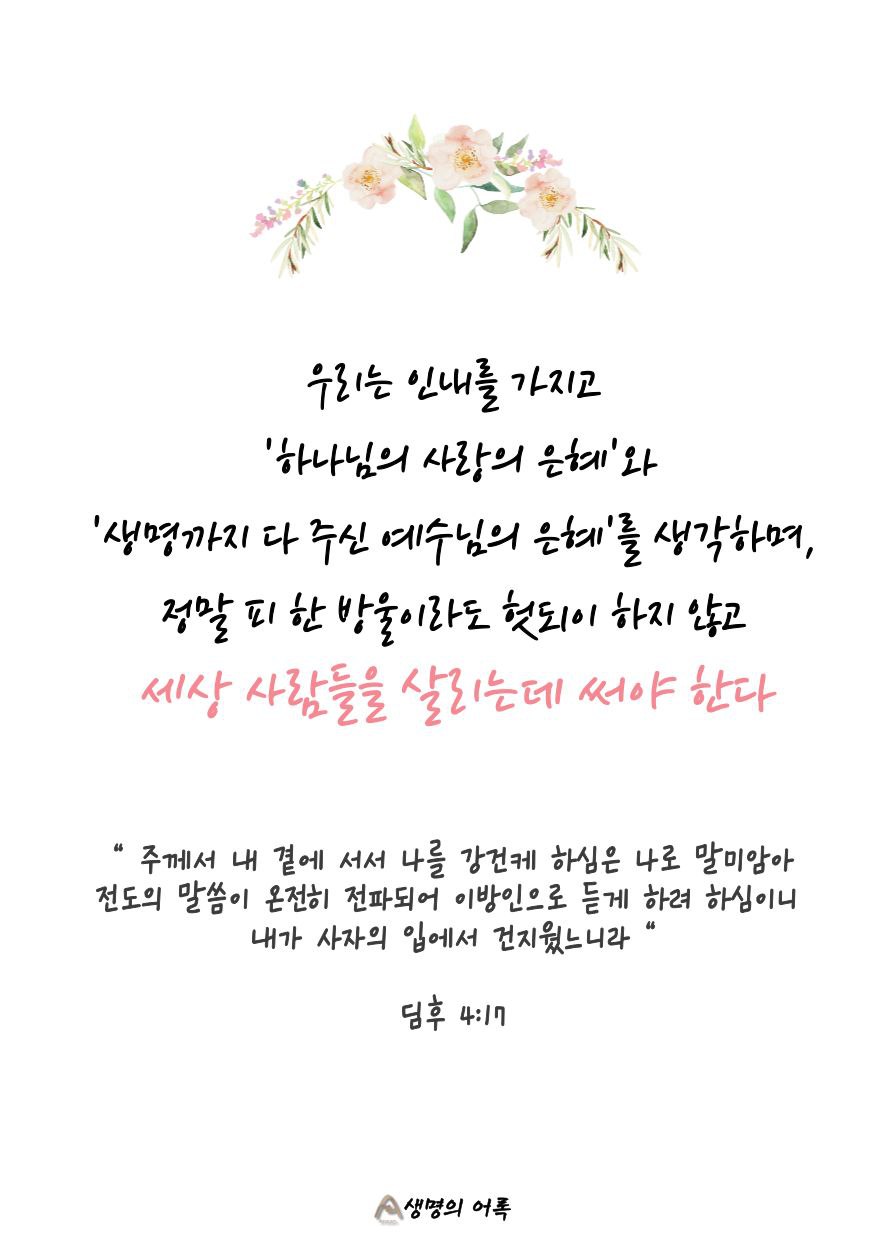 우리는 인내를 가지고
'하나님의 사랑의 은혜'와
'생명까지 다 주신 예수님의 은혜'를 생각하며,
정말 피 한 방울이라도 헛되이 하지 않고
세상 사람들을 살리는데 써야 한다
“ 주께서 내 곁에 서서 나를 강건케 하심은 나로 말미암아
전도의 말씀이 온전히 전파되어 이방인으로 듣게 하려 하심이니
내가 사자의 입에서 건지웠느니라 “
딤후 4:17
생명의 어록